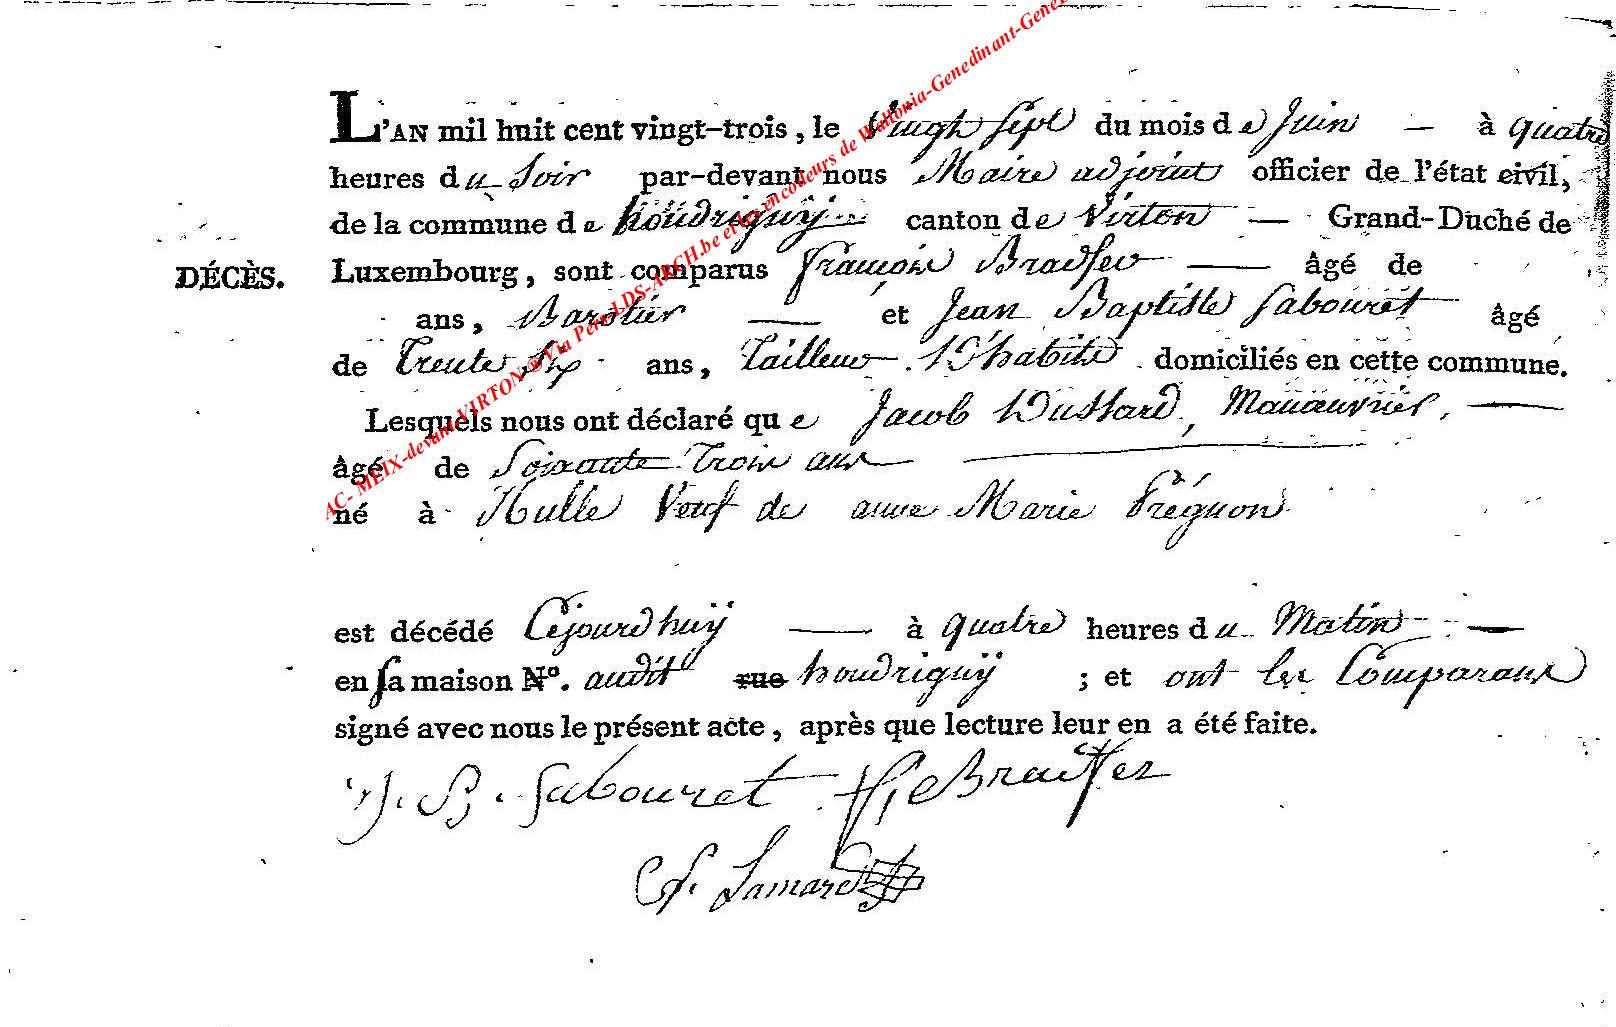 L'AN mil huit cent vingt-trois, le Vingt sept du mois de Juin — à quatre
heures du Soir par-devant nous Maire adjoint officier de l'état civil,
de la commune de houdriguÿ canton de Virton — Grand-Duché de
DÉCÈS. Luxembourg, sont comparus françois — âgé de
ans, — et Jean Baptiste Sabouret âgé
de Trente Six ans, Tailleur D'habits domiciliés en cette commune.
Lesquels nous ont déclaré que Jacob Dussard, Manœuvrier, —
âgé de Soixante Trois ans —
né à Veuf de anne Marie Prégnon
est décédé Cejourdhuÿ — à quatre heures du Matin —
en sa maison Nº. audit rue houdriguÿ ; et ont les Comparans
signé avec nous le présent acte, après que lecture leur en a été faite.
J. B. Sabouret
Lamard
AC- MEIX-devant-VIRTON @ Via Pere-LDS-ARCH.be et les encodeurs de Wallonia-Genedinant-Gene